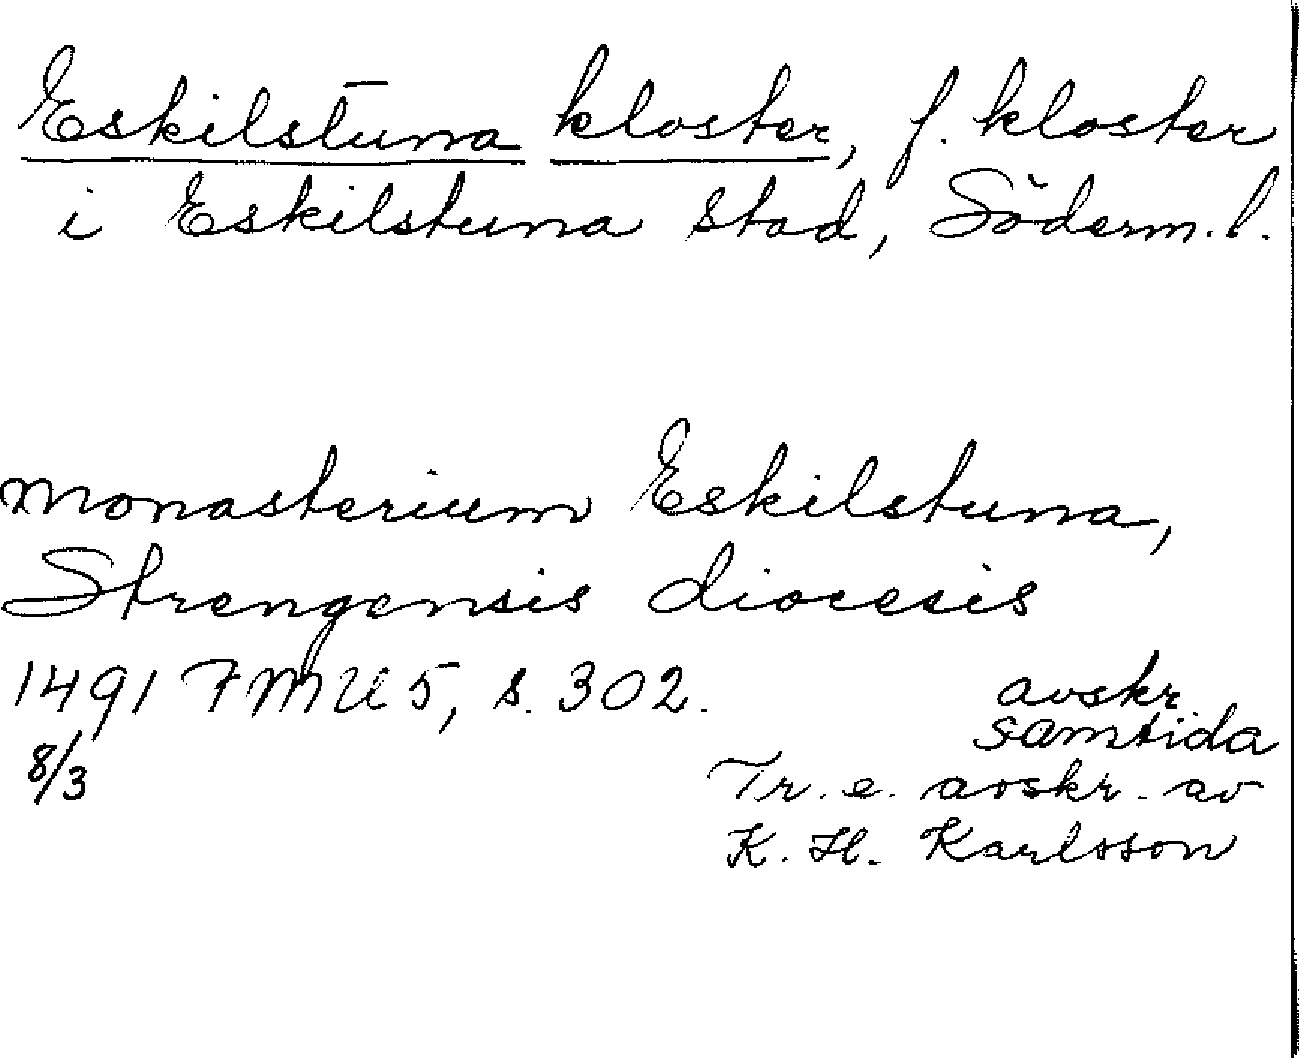 Eskilstuna kloster, f. kloster
i Eskilstuna stad, Söderm. l.
monasterium Eskilstuna,
Strengensis diocesis
1491 FMU 5, s. 302.
8/3
avskr.
samtida
Tr. e. avskr. av
K. H. Karlsson